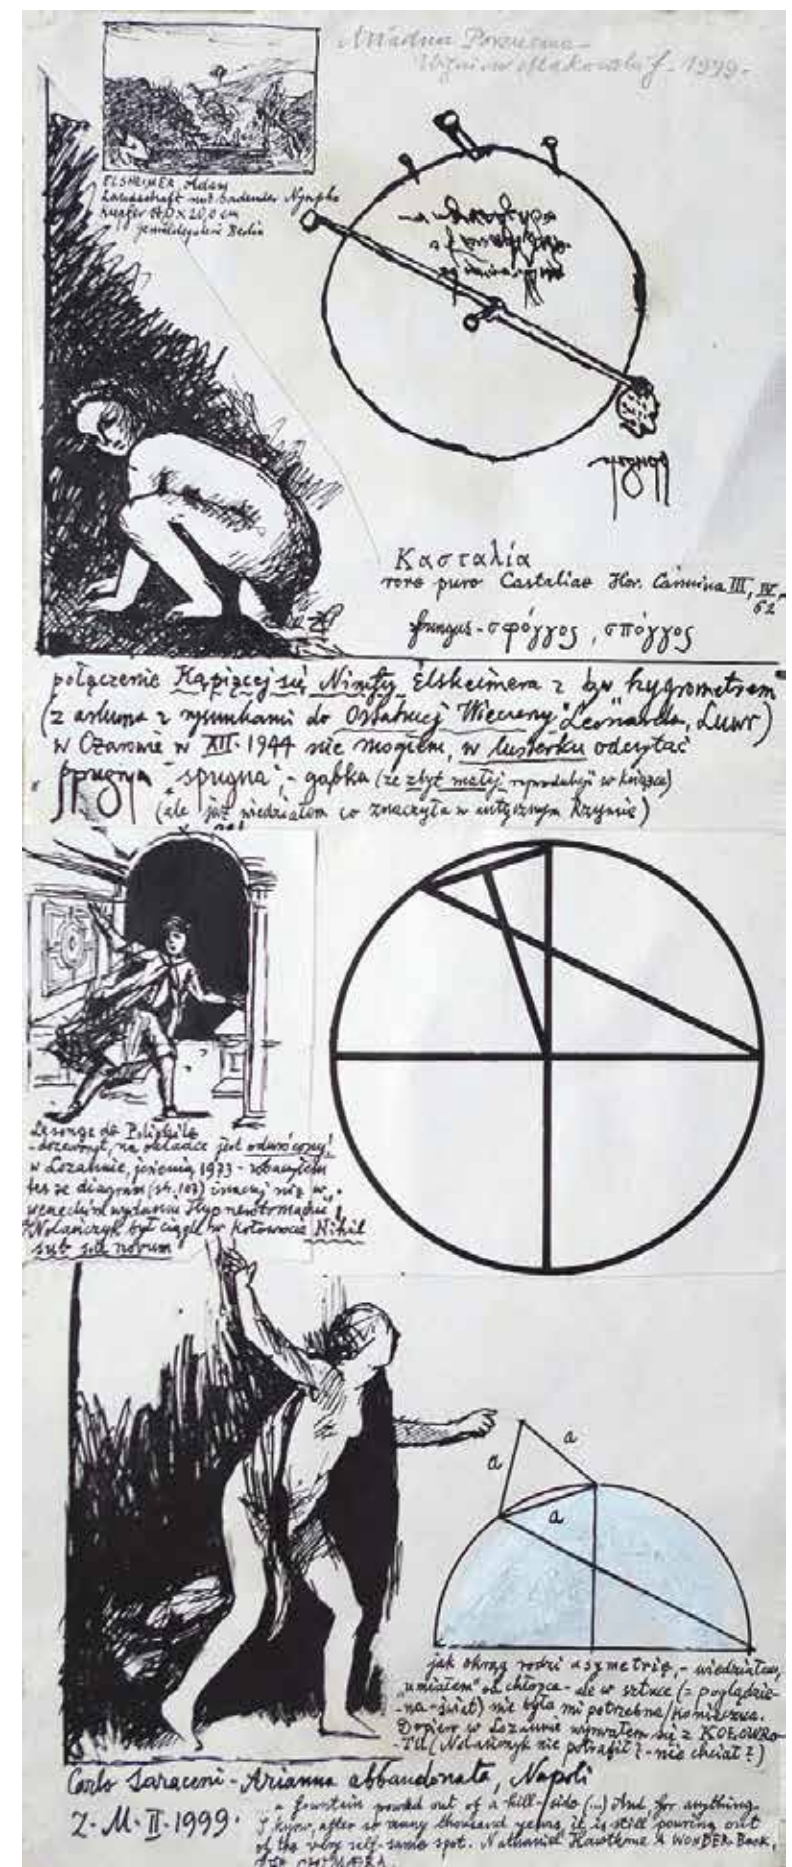 Ariadna Porzucona
Zbigniew Makowski f. 1999.
ELSHEIMER, Adam
Landschaft mit badender Nymphe
kupfer 14,0 x 20,0 cm
Gemäldegalerie Berlin
spugna
Κασταλία
rore puro Castaliae Hor. Carmina III, IV,
62
fungus - σφόγγος, σπόγγος
połączenie Kąpiącej się Nimfy Elsheimera z tzw hygrometrem
(z arkusza z rysunkami do Ostatniej Wieczerzy Leonarda, Luwr)
w Czarnowie w XII. 1944 nie mogłem, w lusterku odczytać
spugna "spugna", - gąbka (ze zbyt małej reprodukcji w książce)
(ale już wiedziałem co znaczyła w antycznym Rzymie)
Le songe de Poliphile
- drzeworyt, na okładce jest odwrócony!
w Lozannie, jesienią 1973 - zobaczyłem
też że diagram (str. 107) inaczej niż w
weneckim wydaniu Hypnerotomachii!
Nolańczyk był ciągle w kołowrocie Nihil
sub sole novum
a
a
a
jak okrąg rodzi asymetrię, - wiedziałem,
"umiałem" od chłopca - ale w sztuce (= poglądzie-
-na-świat) nie była mi potrzebna/konieczna.
Dopiero w Lozannie wyrwałem się z KOŁOWRO-
-TU (Nolańczyk nie potrafił? - nie chciał?)
Carlo Saraceni - Arianna abbandonata, Napoli
Z. M. II. 1999.
a fountain gushed out of a hill-side (...) And for anything
I know, after so many thousand years, it is still pouring out
of the very self-same spot. Nathaniel Hawthorne A WONDER-Book,
THE CHIMÆRA.